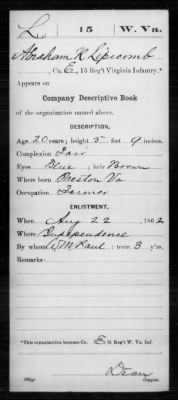 L | 15 | W. Va.
Abraham K Lipscomb
Co. E, 15 Reg't Virginia Infantry.*
Appears on
Company Descriptive Book
of the organization named above.
DESCRIPTION.
Age 20 years; height 5 feet 9 inches.
Complexion Fair
Eyes Blue; hair Brown
Where born Preston Va
Occupation Farmer
ENLISTMENT.
When Aug 22, 1862.
Where Independence
By whom W M Paul; term 3 y'rs.
Remarks:
*This organization became Co. E, 15 Reg't W. Va. Inf.
Dean
Copyist.